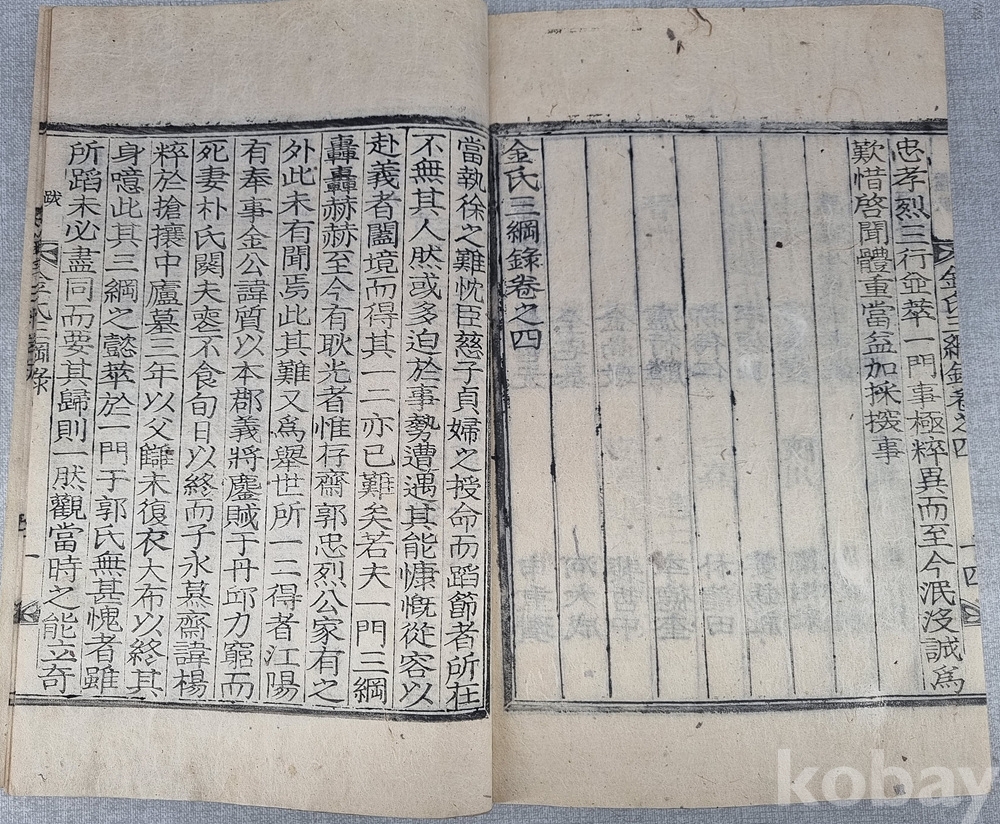 忠孝烈三行並萃一門事極粹異而至今泯沒誠爲
歎惜啓聞體重當益加採掇事
金氏三綱錄卷之四
金氏三綱錄卷之四
十四
當執徐之難忱臣慈子貞婦之授命而蹈節者所在
不無其人然或多迫於事勢遭遇其能慷慨從容以
赴義者闔境而得其一二亦已難矣若夫一門三綱
轟轟赫赫至今有耿光者惟存齋郭忠烈公家有之
外此未有聞焉此其難又爲舉世所一二得者江陽
有奉事金公諱質以本郡義將鏖賊于丹邱力窮而
死妻朴氏閔夫喪不食旬日以終而子永慕齋諱楊
粹於搶攘中廬墓三年以父讎未復衣大布以終其
身噫此其三綱之懿萃於一門于郭氏無甚愧者雖
所蹈未必盡同而要其歸則一然觀當時之能立奇
跋
金氏三綱錄
一
kobay